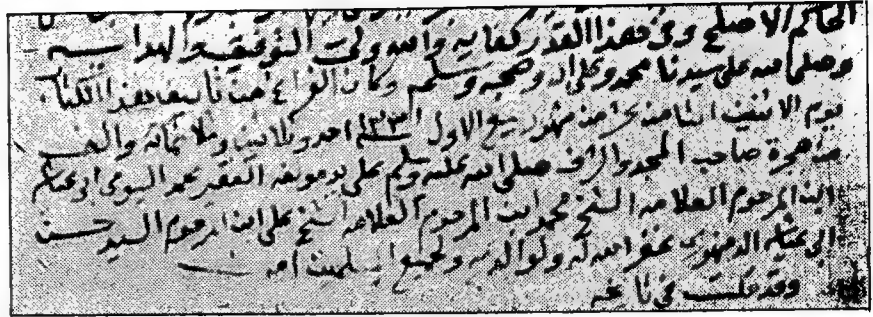 الحاكم الاصلح وفى هذا القدر كفايه والله ولى التوفيق والهدايه
وصلى الله على سيدنا محمد وعلى اله وصحبه وسلم وكان الفراغ من تأليف هذا الكتاب
يوم الاثنين الثامن عشر من شهر ربيع الاول ١٣٣١ احد وثلاثين وثلاثمائة والف
من هجرة صاحب المجد والشرف صلى الله عليه وسلم على يد مؤلفه الفقير محمد البيومى ابى عياشه
ابن المرحوم العلامه الشيخ محمد ابن المرحوم العلامه الشيخ على ابن المرحوم السيد حسن
ابى عياشه الدمنهورى عفا الله له ولوالديه ولجميع المسلمين امين
وقد في